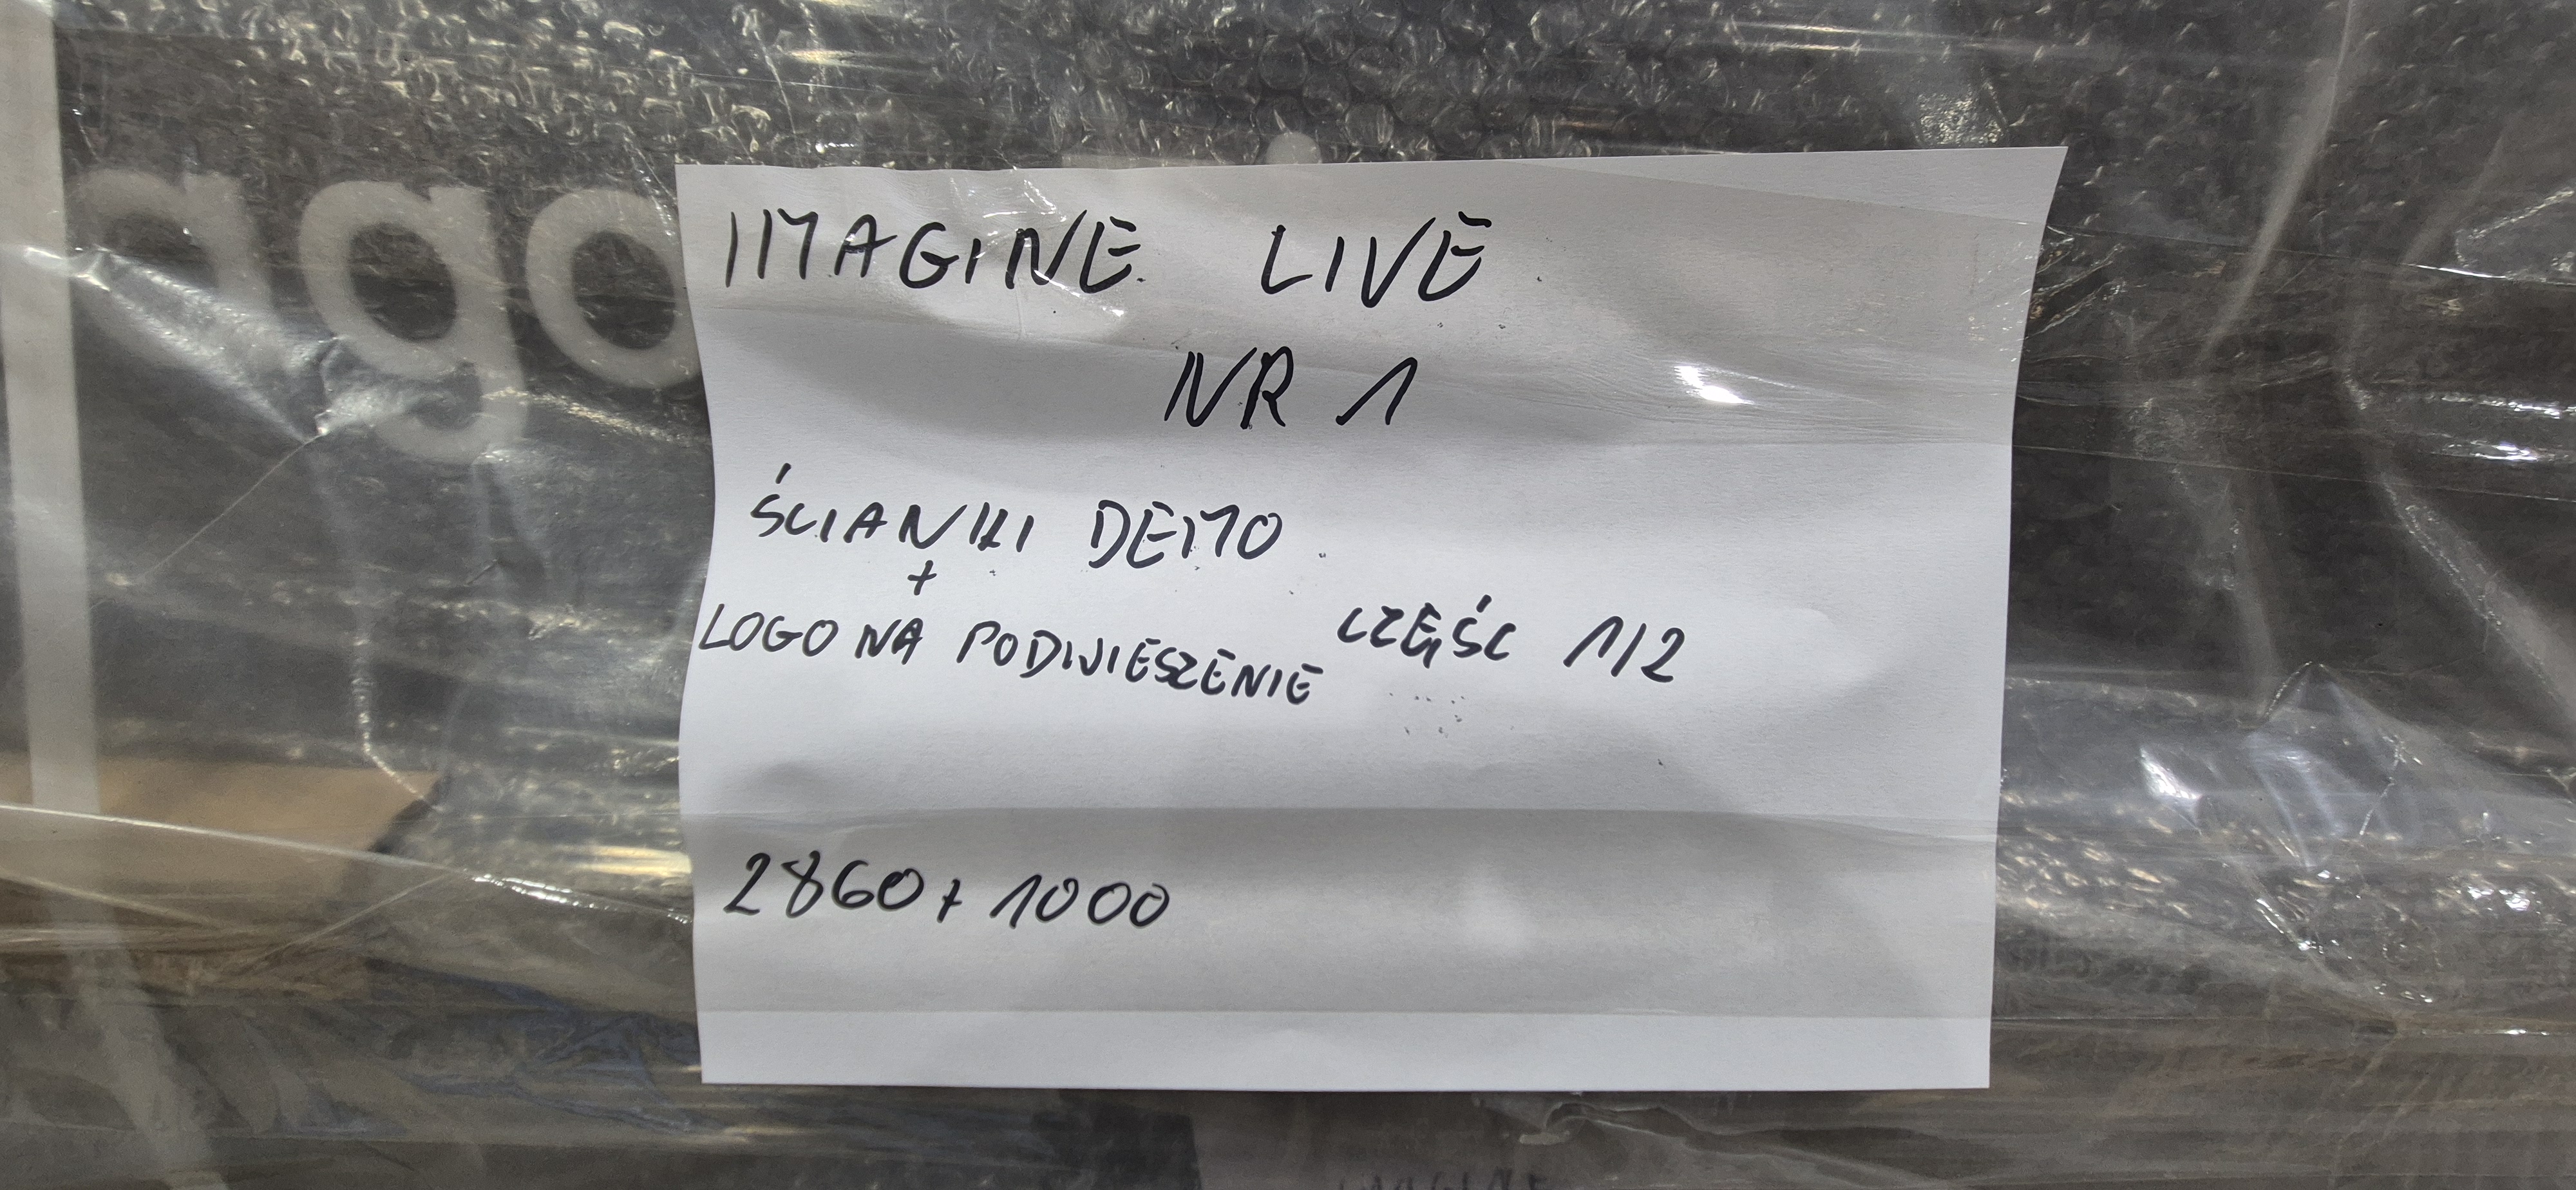 ago
IMAGINE LIVE
NR 1
ŚCIANKI DEMO
+
LOGO NA PODWIESZENIE CZĘŚC 1/2
2860 + 1000
IMAGINE